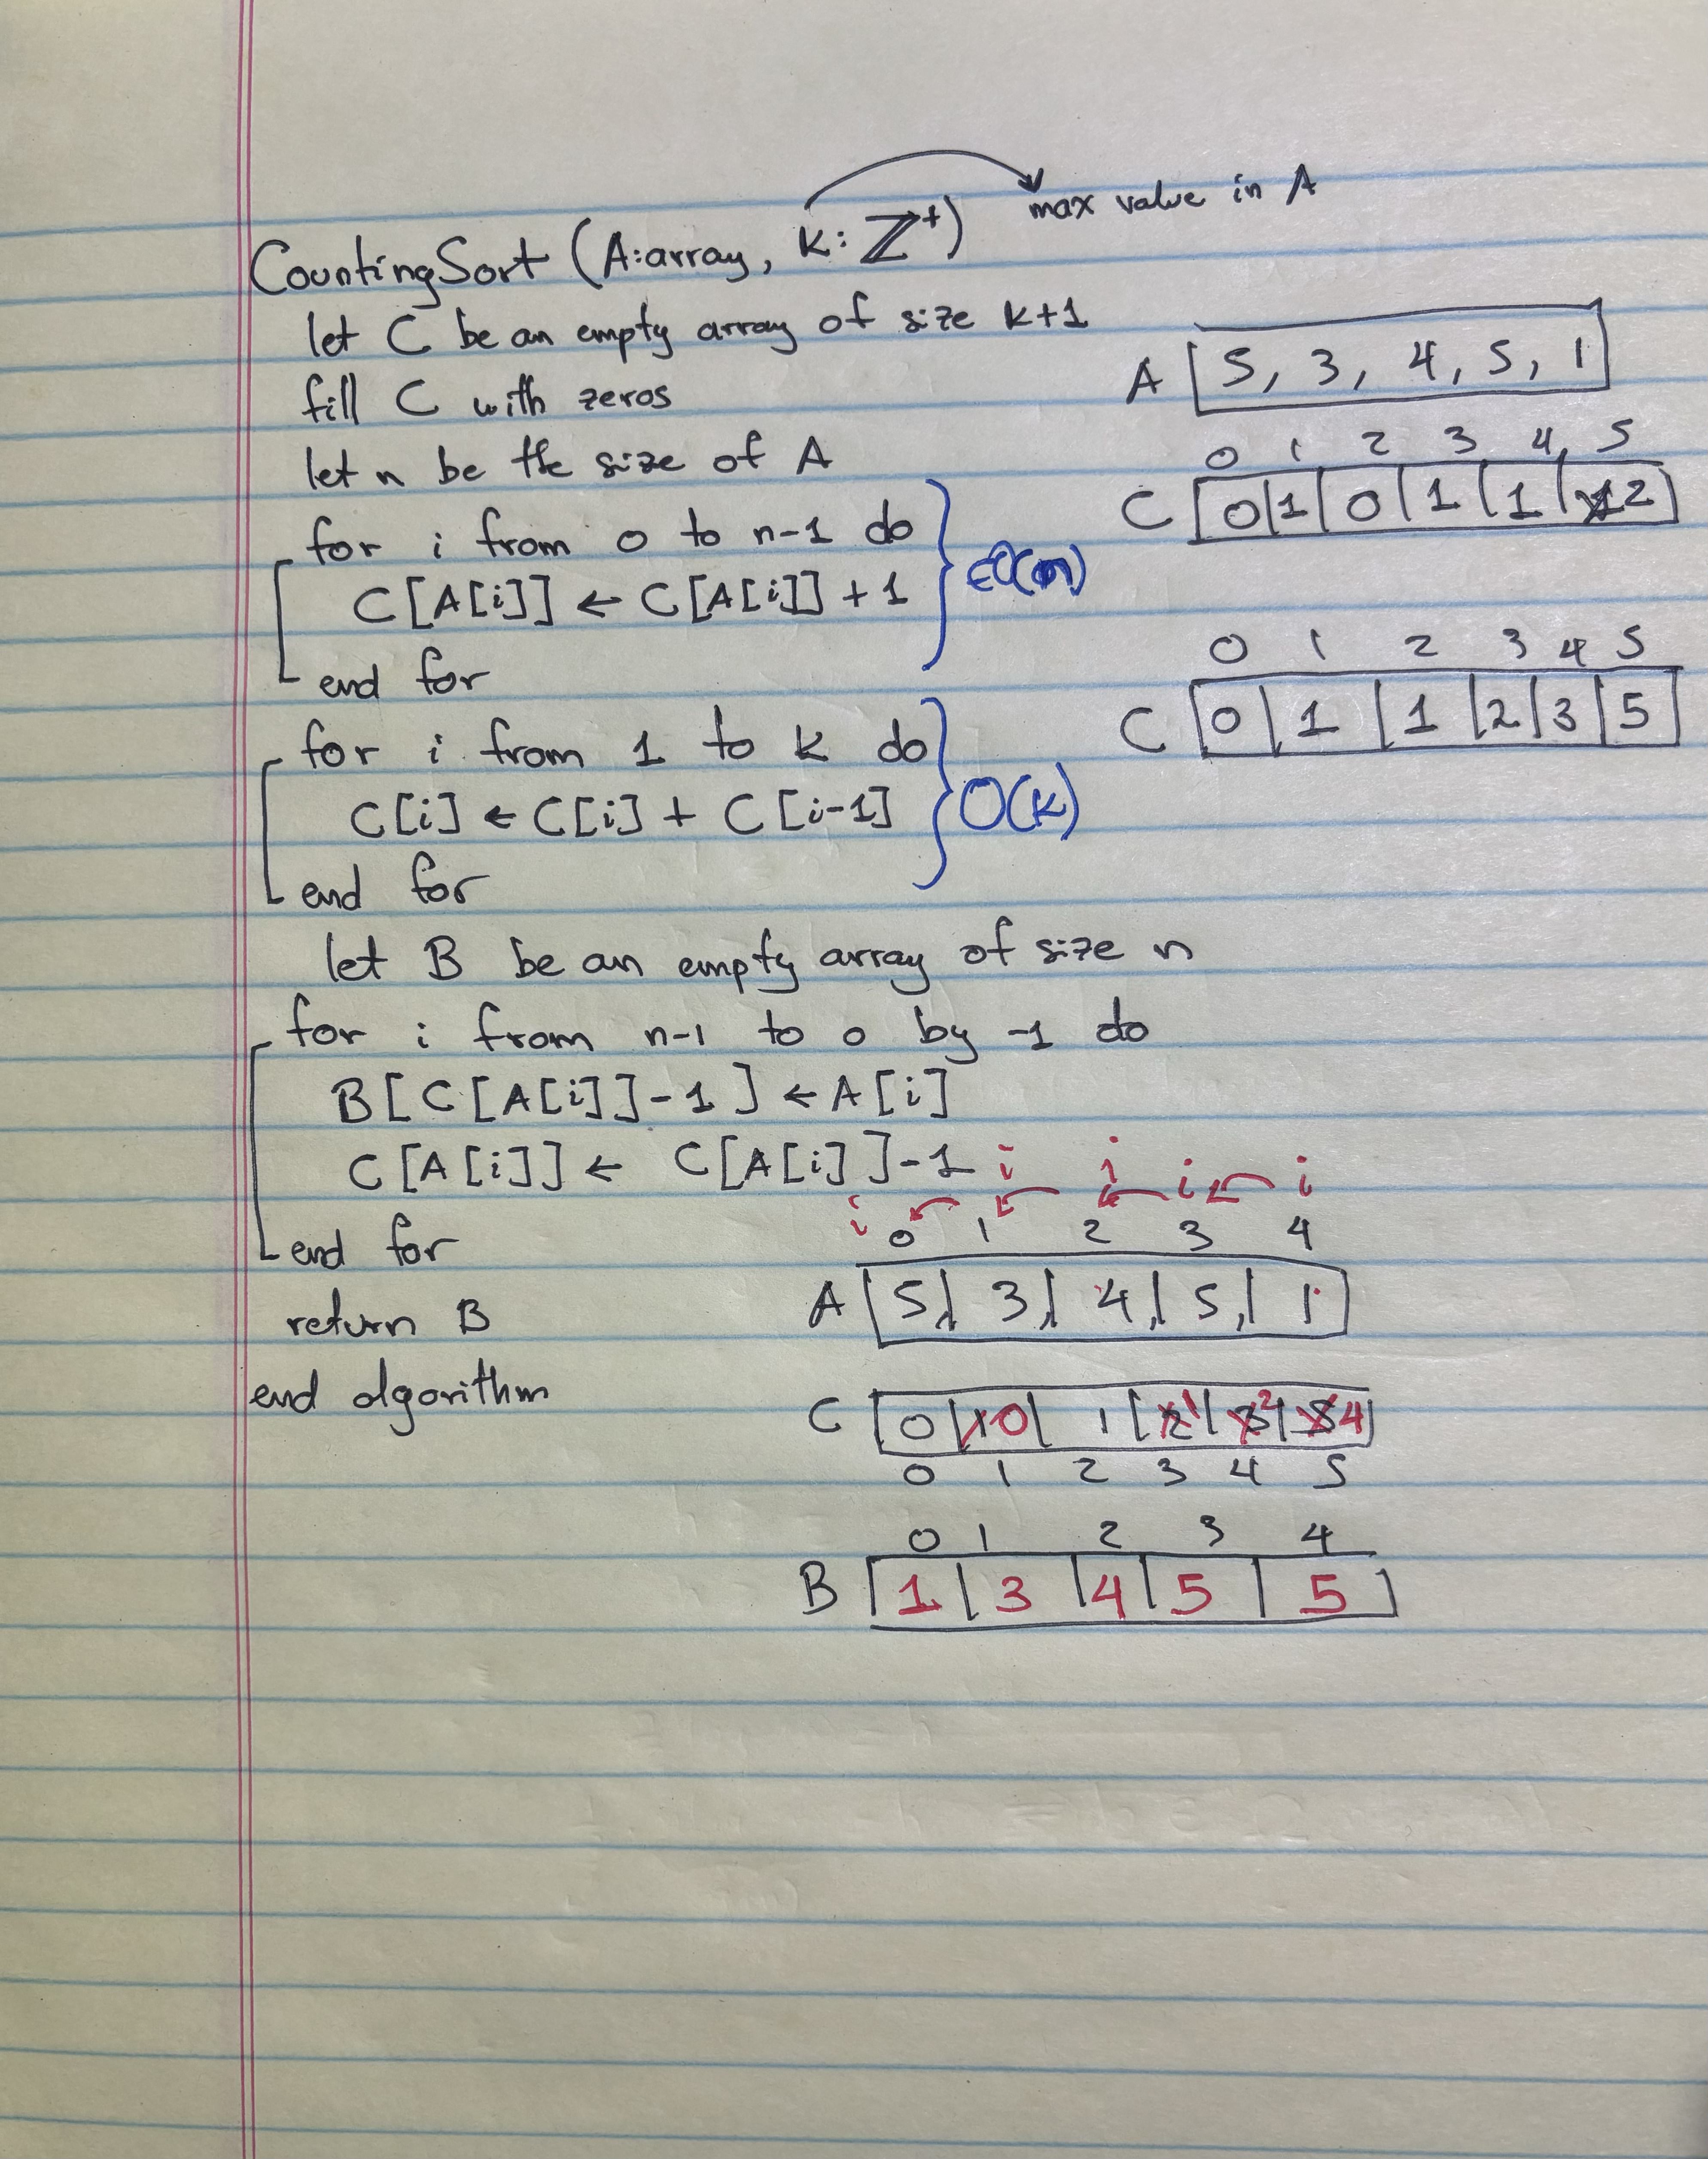 max value in A
CountingSort (A:array, k: ℤ⁺)
let C be an empty array of size k+1
fill C with zeros
let n be the size of A
for i from 0 to n-1 do
C[A[i]] ← C[A[i]] + 1
end for
∈O(n)
for i from 1 to k do
C[i] ← C[i] + C[i-1]
end for
O(k)
let B be an empty array of size n
for i from n-1 to 0 by -1 do
B[C[A[i]]-1] ← A[i]
C[A[i]] ← C[A[i]]-1
end for
return B
end algorithm
A 5, 3, 4, 5, 1
0 1 2 3 4 5
C 0 1 0 1 1 1 2
0 1 2 3 4 5
C 0 1 1 2 3 5
i i i i i
0 1 2 3 4
A 5, 3, 4, 5, 1
C 0 1 0 1 2 1 3 2 5 4
0 1 2 3 4 5
0 1 2 3 4
B 1 3 4 5 5